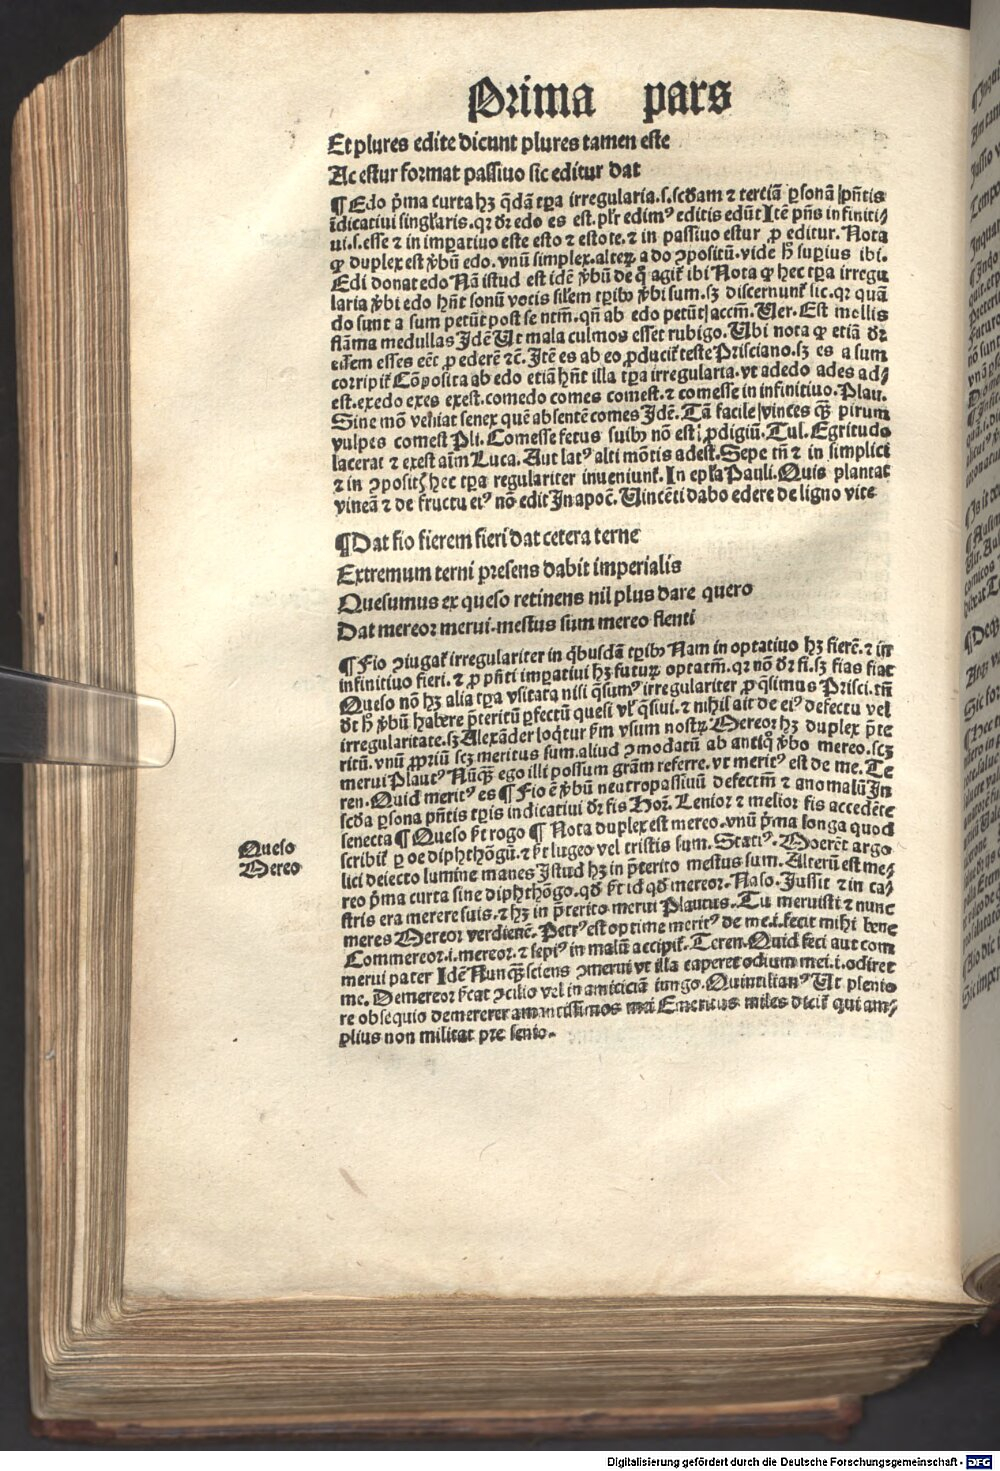 Prima pars
Et plures edite dicunt plures tamen este
Ac estur format passiuo sic editur dat
¶ Edo p̄ma curta hꝫ q̄dā tꝑa irregularia.s.scďam ⁊ terciā ꝑsonā p̄ntis
īdicatiui singl'aris.qꝛ ďr edo es est.pl'r edimꝰ editis edūt Itē p̄ns infiniti⸗
ui.s.esse ⁊ in impatiuo este esto ⁊ estote.⁊ in passiuo estur ꝓ editur. Nota
ꝙ duplex est v̄bū edo.vnū simplex.alteꝝ a do ꝯpositū.vide h̄ supius ibi.
Edi donat edo Nā istud est idē v̄bū de quo agit̄ ibi Nota ꝙ hec tꝑa irregu
laria v̄bi edo hn̄t sonū vocis silem tꝑibꝫ v̄bi sum.sꝫ discernunt̄ sic.qꝛ quā
do sunt a sum petūt post se ntm̄.qn̄ ab edo petūt accm̄.Uer. Est mollis
flāma medullas Idē Ut mala culmos esset rubigo. Ubi nota ꝙ etiā ďr
eısem esses eēt ꝓ ederē ⁊c. Itē es ab eo ꝓducit̄ teste Prisciano.sꝫ es a sum
corripit̄ Cōposita ab edo etiā hn̄t illa tꝑa irregularia.vt adedo ades ad⸗
est.exedo exes exest.comedo comes comest.⁊ comesse in infinitiuo. Plau.
Sine mō veniat senex quē absentē comes Idē. Tā facile vinces qꝫ pirum
vulpes comest Pli. Comesse fetus suibꝫ nō est ꝓdigiū. Tul. Egritudo
lacerat ⁊ exest aīm Luca. Aut latꝰ alti mōtis adest. Sepe tn̄ ⁊ in simplici
⁊ in ꝯposit̄ hec tꝑa regulariter inueniunt̄. In epl'a Pauli. Quis plantat
vineā ⁊ de fructu eiꝰ nō edit In apoc̄. Uincēti dabo edere de ligno vite
¶ Dat fio fierem fieri dat cetera terne
Extremum terni presens dabit imperialis
Quesumus ex queso retinens nil plus dare quero
Dat mereor merui.mestus sum mereo flenti
¶ Fio ꝯiugat̄ irregulariter in q̇busdā tꝑibꝫ Nam in optatiuo hꝫ fierē.⁊ in
infinitiuo fieri.⁊ ꝓ p̄nti impatiui hꝫ futuꝝ optatm̄.qꝛ nō ďr fi.sꝫ fias fiat
Queso nō hꝫ alia tꝑa vsitata nisi q̄sumꝰ irregulariter ꝓ q̄simus Prisci. tn̄
ďt h̄ v̄bū habere p̄teritū ꝑfectū quesi vl' q̄siui.⁊ nihil ait de eiꝰ defectu vel
irregularitate.sꝫ Alexāder loqt̄ur ꝑm vsum nostꝝ. Mereor hꝫ duplex p̄te
ritū.vnū ꝓpriū scꝫ meritus sum.aliud ꝯmodatū ab antiquo v̄bo mereo.scꝫ
merui Plautꝰ Nūqꝫ ego illi possum grām referre.vt meritꝰ est de me. Te
ren.Quid meritꝰ es ¶ Fio ē v̄bū neutropassiuū defectm̄ ⁊ anomalū In
scďa ꝑsona p̄ntis tꝑis indicatiui ďr fis Hor. Lenior ⁊ melior fis accedēte
senecta ¶ Queso s̄t rogo ¶ Nota duplex est mereo.vnū p̄ma longa quod
scribit̄ ꝑ oe diphthōgū.⁊ s̄t lugeo vel tristis sum. Statiꝰ. Moerēt argo
lici deiecto lumine manes Istud hꝫ in p̄terito mestus sum. Alterū est me⸗
reo p̄ma curta sine diphthōgo.qď s̄t id qď mereor. Naso. Jussit ⁊ in ca⸗
stris era merere suis.⁊ hꝫ in p̄terito merui Plautus. Tu meruisti ⁊ nunc
meres Mereor verdienē. Petrꝰ est optime meritꝰ de me.i.fecit mihi bene
Commereor.i.mereor.⁊ sepiꝰ in malū accipit̄. Teren. Quid feci aut com
merui pater Idē Nunqꝫ sciens ꝯmerui vt illa caperet odium mei.i.odiret
me. Demereor s̄cat ꝯcilio vel in amiciciā iungo. Quintilianꝰ Ut plenio
re obsequio demererer amantissimos mei Emeritus miles dicit̄ qui am⸗
plius non militat pre senio.
Queso
Mereo
Digitalisierung gefördert durch die Deutsche Forschungsgemeinschaft - DFG